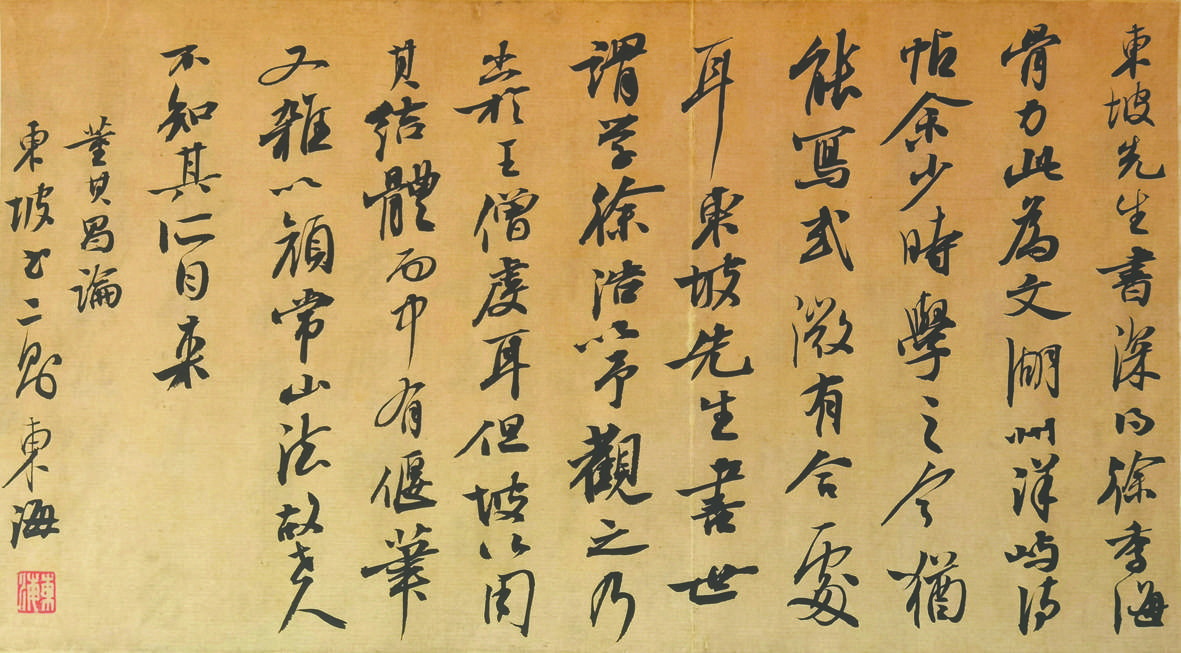 東坡先生書深得徐季海
骨力此為文湖州洋嶼詩
帖余少時學之今猶
能寫或微有合處
耳東坡先生書世
謂学徐浩以予觀之乃
出於王僧虔耳但坡公用
其結體而中有偃筆
又雜以顏常山法故世人
不知其所自来
董其昌論
東坡書二則 東海
東海